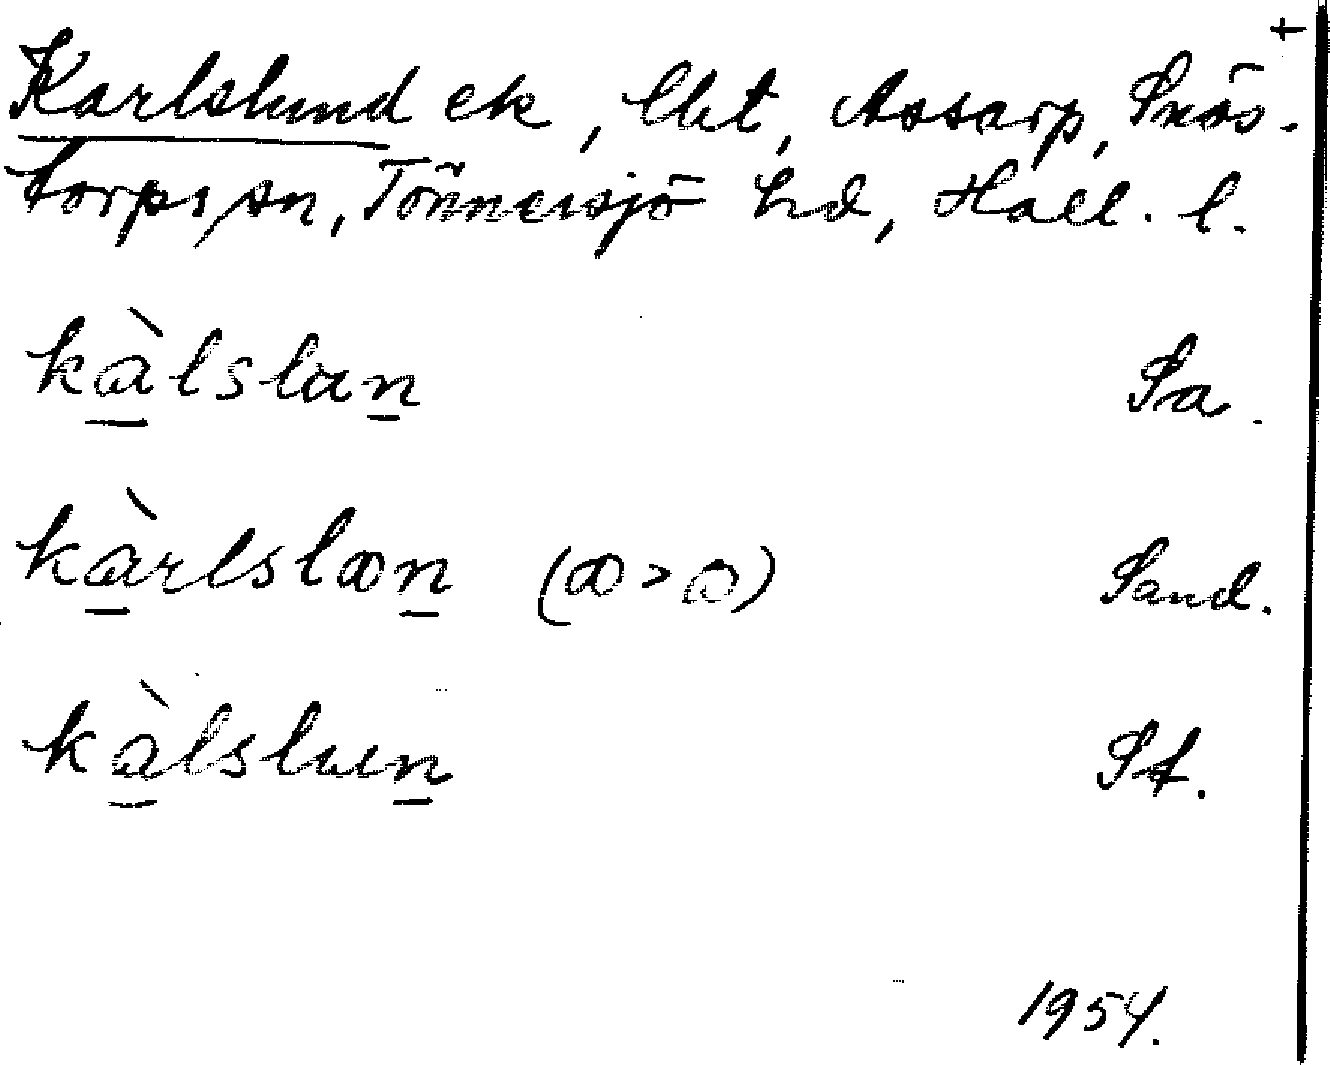 Karlslund ek, lht, Assarp, Snös-
torps sn, Tönnersjö hd, Hall. l.
kàlslan Sa.
kàrlslɷn (ɷ > ɷ) Sand.
kàlslun St.
1954.